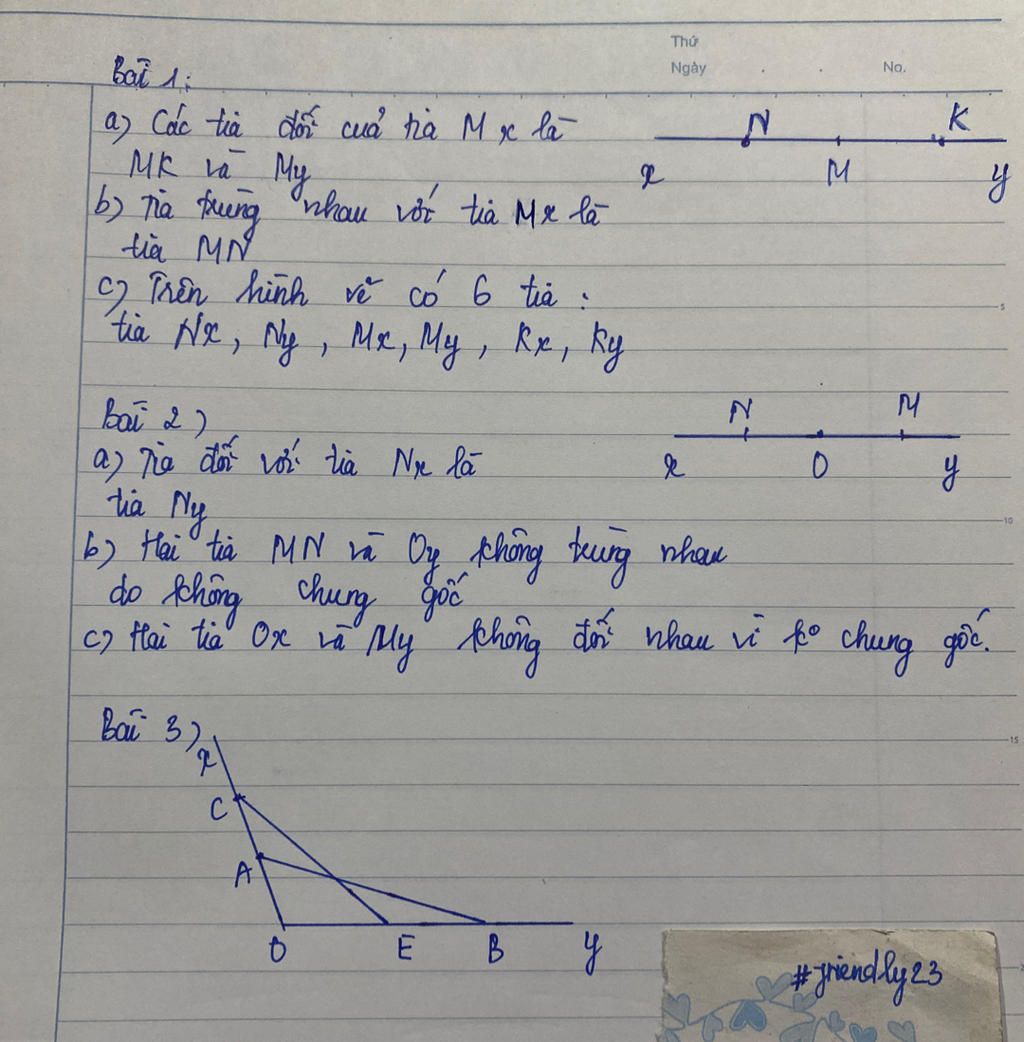 Thứ
Ngày . . No.
Bài 1:
a) Các tia đối của tia Mx là
MK và My
N K
x M y
b) Tia trùng nhau với tia Mx là
tia MN
c) Trên hình vẽ có 6 tia :
5
tia Nx, Ny, Mx, My, Kx, Ky
Bài 2)
N M
x O y
a) Tia đối với tia Nx là
tia Ny
10
b) Hai tia MN và Oy không trùng nhau
do không chung gốc
c) Hai tia Ox và My không đối nhau vì ko chung gốc.
Bài 3)
15
x
C
A
O E B y
#friendly23